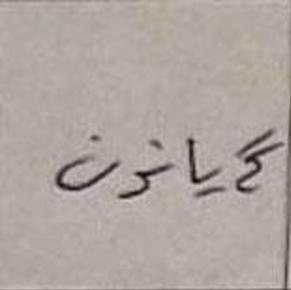 گیانون